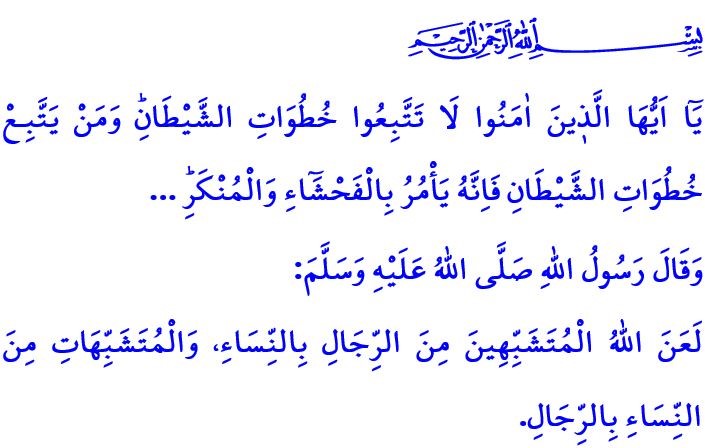 بِسْمِ اللّٰهِ الرَّحْمٰنِ الرَّحِيمِ
يَٓا اَيُّهَا الَّذ۪ينَ اٰمَنُوا لَا تَتَّبِعُوا خُطُوَاتِ الشَّيْطَانِۜ وَمَنْ يَتَّبِعْ
خُطُوَاتِ الشَّيْطَانِ فَاِنَّهُ يَأْمُرُ بِالْفَحْشَٓاءِ وَالْمُنْكَرِۜ ...
وَقَالَ رَسُولُ اللّٰهِ صَلَّى اللّٰهُ عَلَيْهِ وَسَلَّمَ:
لَعَنَ اللّٰهُ الْمُتَشَبِّهِينَ مِنَ الرِّجَالِ بِالنِّسَاءِ، وَالْمُتَشَبِّهَاتِ مِنَ
النِّسَاءِ بِالرِّجَالِ.